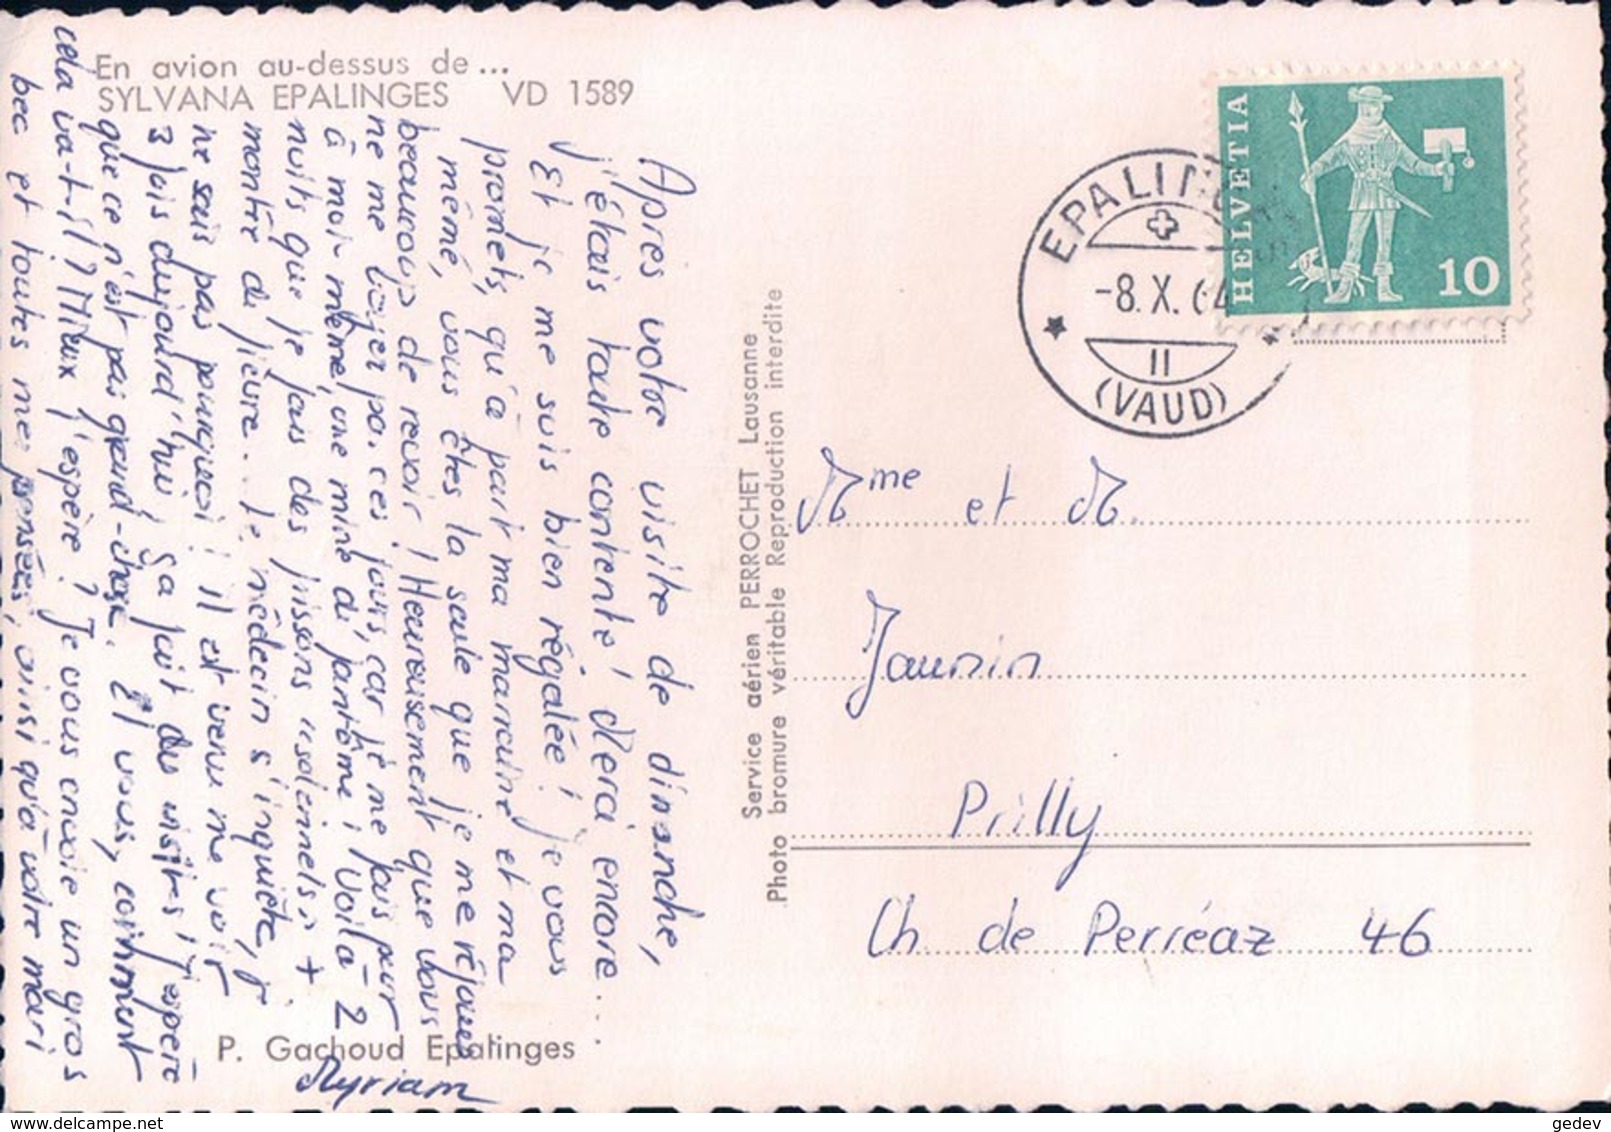 En avion au-dessus de ...
SYLVANA EPALINGES VD 1589
Après votre visite de dimanche,
j'étais toute contente! Merci encore...
Et je me suis bien régalée! Je vous
promets, qu'à part ma marraine et ma
mémé, vous êtes la seule que je me réjouis
beaucoup de revoir! Heureusement que vous
ne me voyez pas ces jours, car je me fais peur
à moi-même, une mine de fantôme! Voilà 2
nuits que je fais des frissons "solennels" +
montée de fièvre... le médecin s'inquiète, je
ne sais pas pourquoi! il est venu me voir
3 fois aujourd'hui! Ça fait des visites! J'espère
que ce n'est pas grand-chose. Et vous, comment
cela va-t-il? Mieux j'espère? Je vous envoie un gros
bec et toutes mes pensées, ainsi qu'à votre mari
Myriam
P. Gachoud Epalinges
Service aérien PERROCHET Lausanne
Photo bromure véritable Reproduction interdite
HELVETIA
10
EPALINGES
-8.X.64
II
(VAUD)
Mme et M.
Jaunin
Prilly
Ch de Perréaz 46
gedev